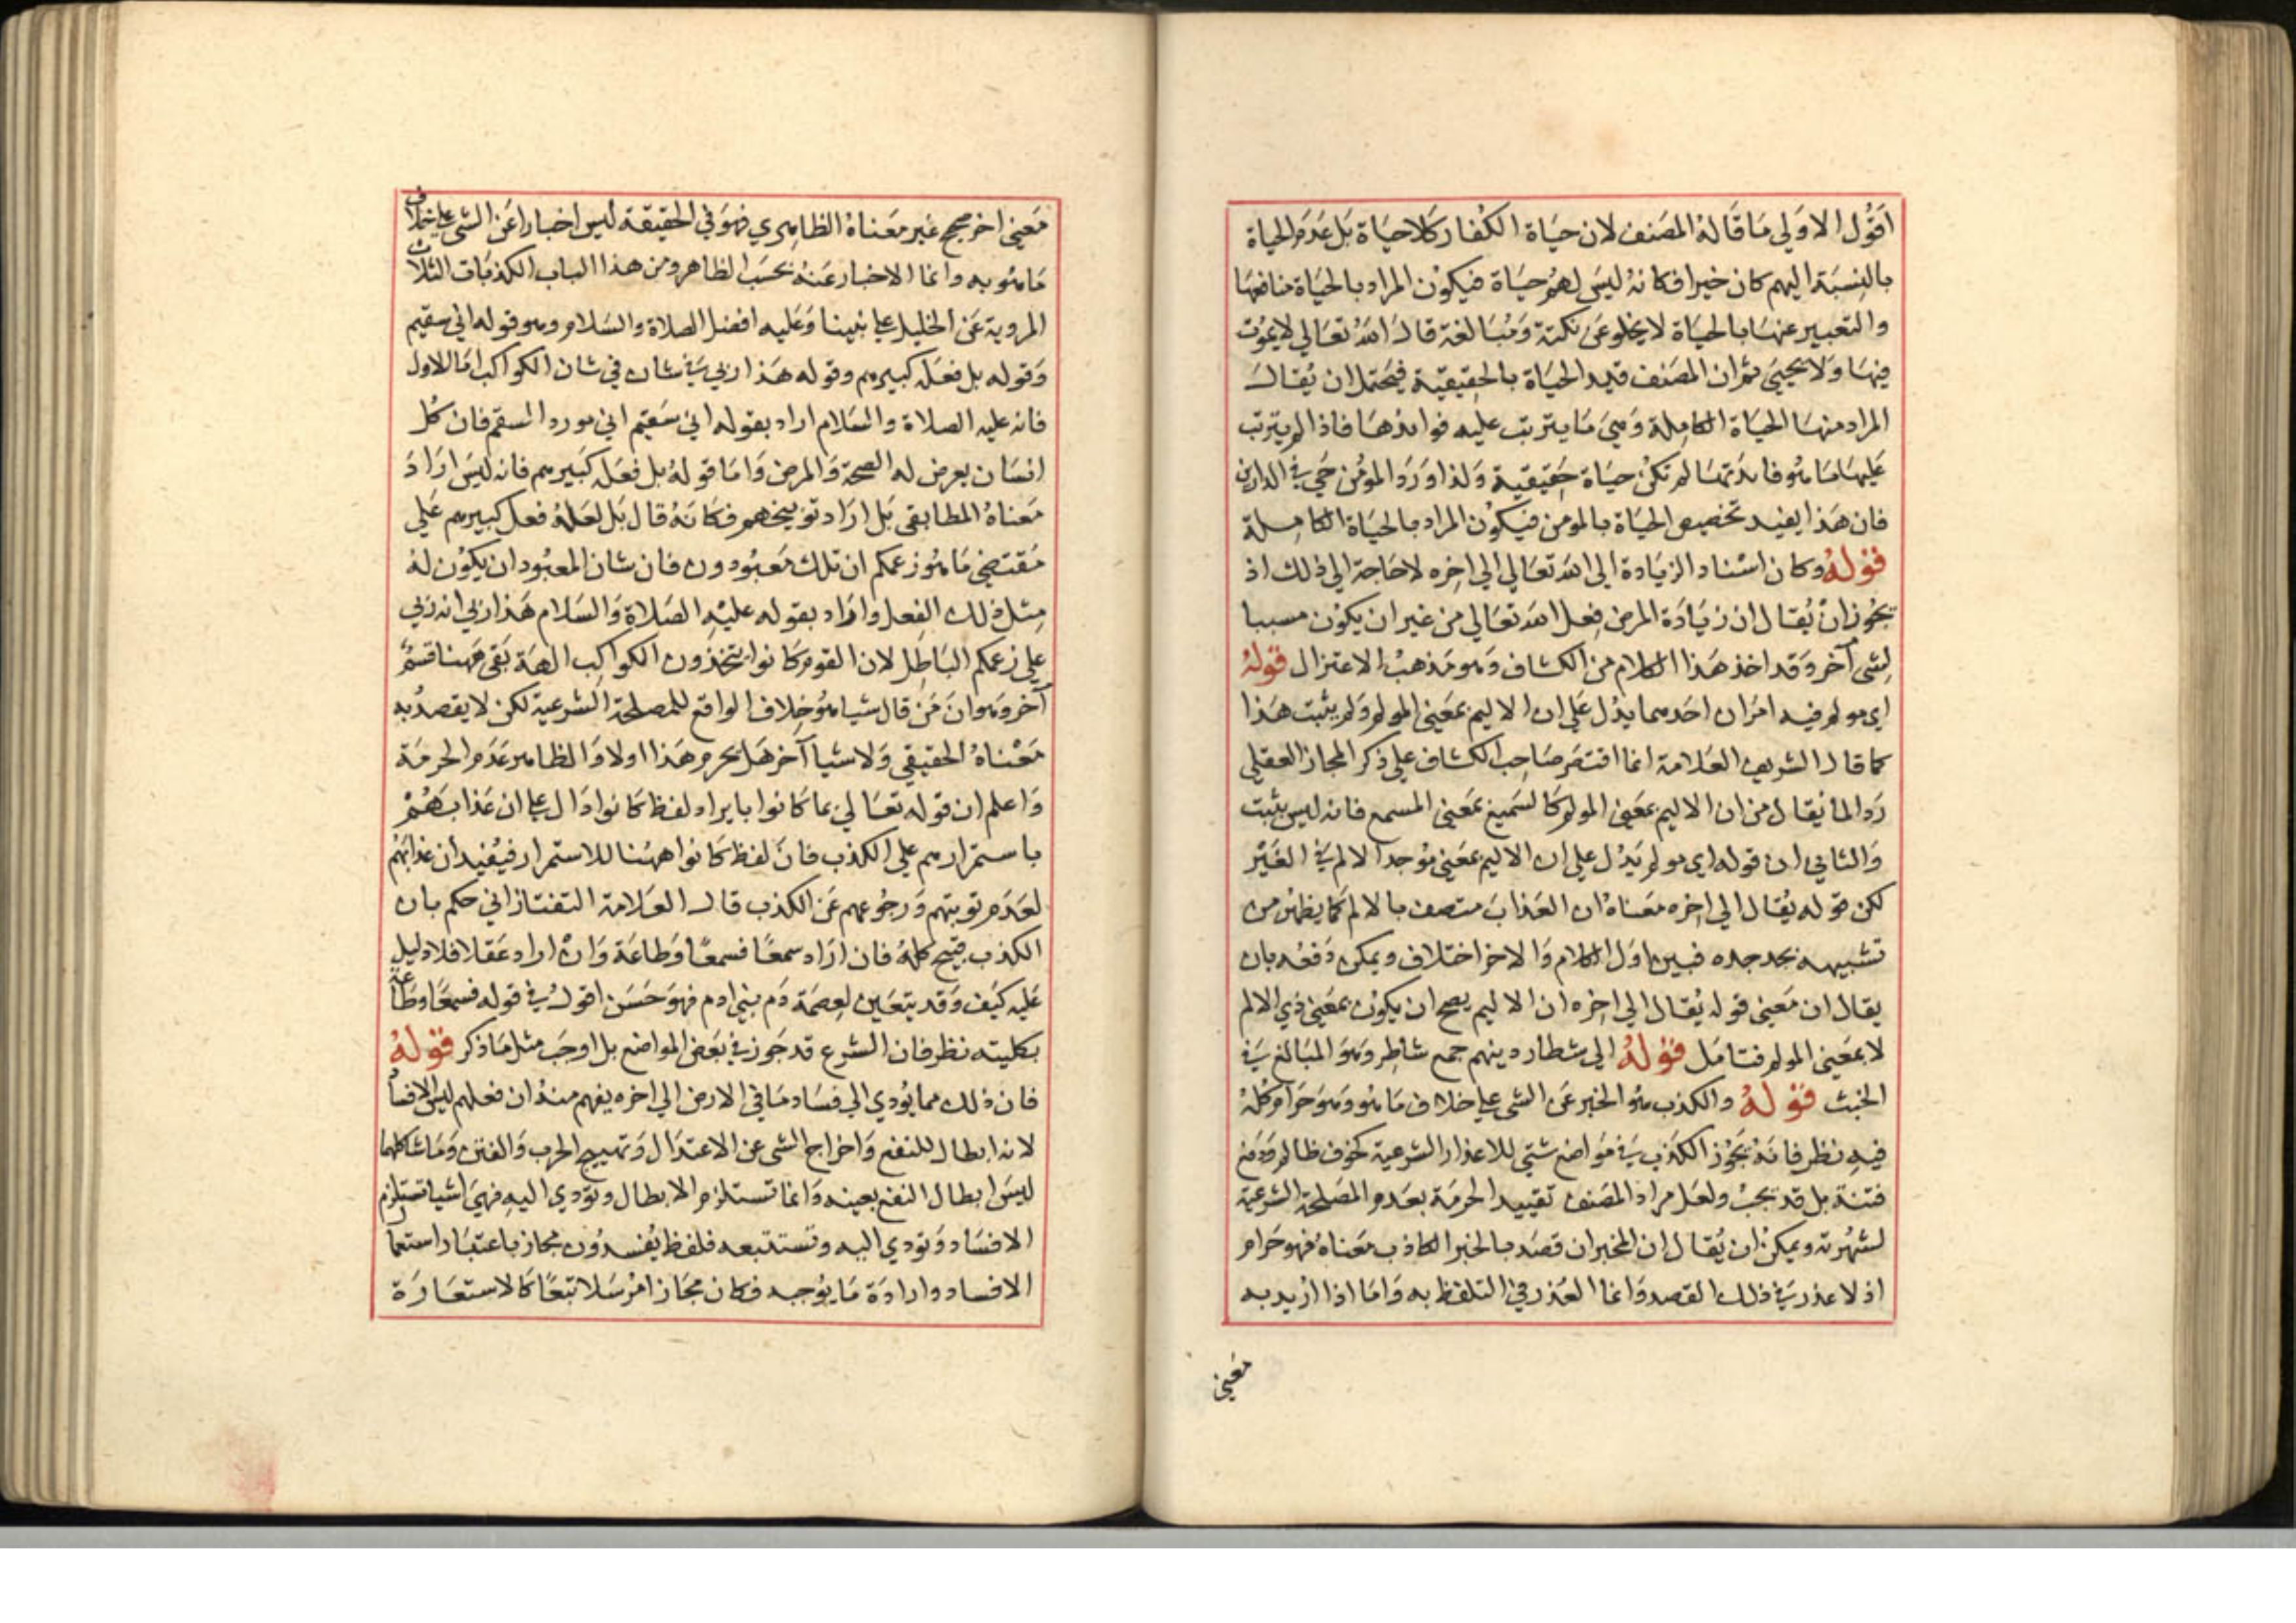 اقول الاولي ما قاله المصنف لان حياة الكفار كلا حياة بل عدم الحياة
بالنسبة اليهم كان خيرا فكانه ليس لهم حياة فيكون المراد بالحياة منافعها
والتعبير عنها بالحياة لا يخلو عن نكتة ومبالغة قال الله تعالي لا يموت
فيها ولا يحيي ثم ان المصنف قيد الحياة بالحقيقية فيحتمل ان يقال
المراد منها الحياة الكاملة وهي ما يترتب عليه فوائدها فاذا لم يترتب
عليها ما هو فائدتها لم تكن حياة حقيقية ولذا ورد المؤمن حي في الدارين
فان هذا يفيد تخصيص الحياة بالمومن فيكون المراد بالحياة الكاملة
قوله وكان اسناد الزيادة الي الله تعالي الي اخره لا حاجة الي ذلك اذ
يجوز ان يقال ان زيادة المرض فعل الله تعالي من غير ان يكون مسببا
لشي آخر وقد اخذ هذا الكلام من الكشاف وهو مذهب الاعتزال قوله
اي مولم فيه امران احدهما يدل علي ان الاليم بمعني المولم ولم يثبت هذا
كما قال الشريف العلامة انما اقتصر صاحب الكشاف علي ذكر المجاز العقلي
ردا لما يقال من ان الاليم بمعني المولم كالسميع بمعني المسمع فانه ليس بثبت
والثاني ان قوله اي مولم يدل علي ان الاليم بمعني موجد الالم في الغير
لكن قوله يقال الي اخره معناه ان العذاب متصف بالالم كما يظهر من
تشبيهه بجد جده فبين اول الكلام والاخر اختلاف ويمكن دفعه بان
يقال ان معني قوله يقال الي اخره ان الاليم يصح ان يكون بمعني ذي الالم
لا بمعني المولم فتامل قوله الي شطار دينهم جمع شاطر وهو المبالغ في
الخبث قوله والكذب هو الخبر عن الشي علي خلاف ما هو وهو حرام كله
فيه نظر فانه يجوز الكذب في مواضع شتي للاعذار الشرعية كخوف ظالم ودفع
فتنة بل قد يجب ولعل مراد المصنف تقييد الحرمة بعدم المصلحة الشرعية
لشهرته ويمكن ان يقال ان المخبر ان قصد بالخبر الكاذب معناه فهو حرام
اذ لا عذر في ذلك القصد وانما العذر في التلفظ به واما اذا اريد به
معني
معني اخر صحيح غير معناه الظاهري فهو في الحقيقة ليس اخبارا عن الشي علي خلاف
ما هو به وانما الاخبار عنه بحسب الظاهر ومن هذا الباب الكذبات الثلاث
المروية عن الخليل علي نبينا وعليه افضل الصلاة والسلام وهو قوله اني سقيم
وقوله بل فعله كبيرهم وقوله هذا ربي في شان الكواكب اما الاول
فانه عليه الصلاة والسلام اراد بقوله اني سقيم اني مورد السقم فان كل
انسان يعرض له الصحة والمرض واما قوله بل فعله كبيرهم فانه ليس اراد
معناه المطابقي بل اراد توبيخهم فكانه قال بل لعله فعل كبيرهم علي
مقتضي ما هو زعمكم ان تلك معبودون فان شان المعبود ان يكون له
مثل ذلك الفعل واراد بقوله عليه الصلاة والسلام هذا ربي انه ربي
علي زعمكم الباطل لان القوم كانوا يتخذون الكواكب الهة بقي ههنا قسم
آخر وهو ان من قال شيا هو خلاف الواقع للمصلحة الشرعية لكن لا يقصد به
معناه الحقيقي ولا شيا آخر هل يحرم هذا اولا والظاهر عدم الحرمة
واعلم ان قوله تعالي بما كانوا بايراد لفظ كانوا دال علي ان عذابهم
باستمرارهم علي الكذب فان لفظ كانوا ههنا للاستمرار فيفيد ان عذابهم
لعدم توبتهم ورجوعهم عن الكذب قال العلامة التفتازاني حكم بان
الكذب قبيح كله فان اراد سمعا فسمعا وطاعة وان اراد عقلا فلا دليل
عليه كيف وقد يتعين لعصمة دم بني ادم فهو حسن اقول في قوله فسمعا وطاعة
بكليته نظر فان الشرع قد جوز في بعض المواضع بل اوجب مثل ما ذكر قوله
فان ذلك مما يودي الي فساد ما في الارض الي اخره يفهم منه ان فعلهم ليس الافساد
لانه ابطال للنفع واخراج الشي عن الاعتدال وتهييج الحرب والفتن وما شاكلهما
ليس ابطال النفع بعينه وانما تستلزم الابطال وتودي اليه فهي اشيا تستلزم
الافساد وتودي اليه وتستتبعه فلفظ يفسدون مجاز باعتبار استعمال
الافساد وارادة ما يوجبه فكان مجازا مرسلا تبعا كالاستعارة